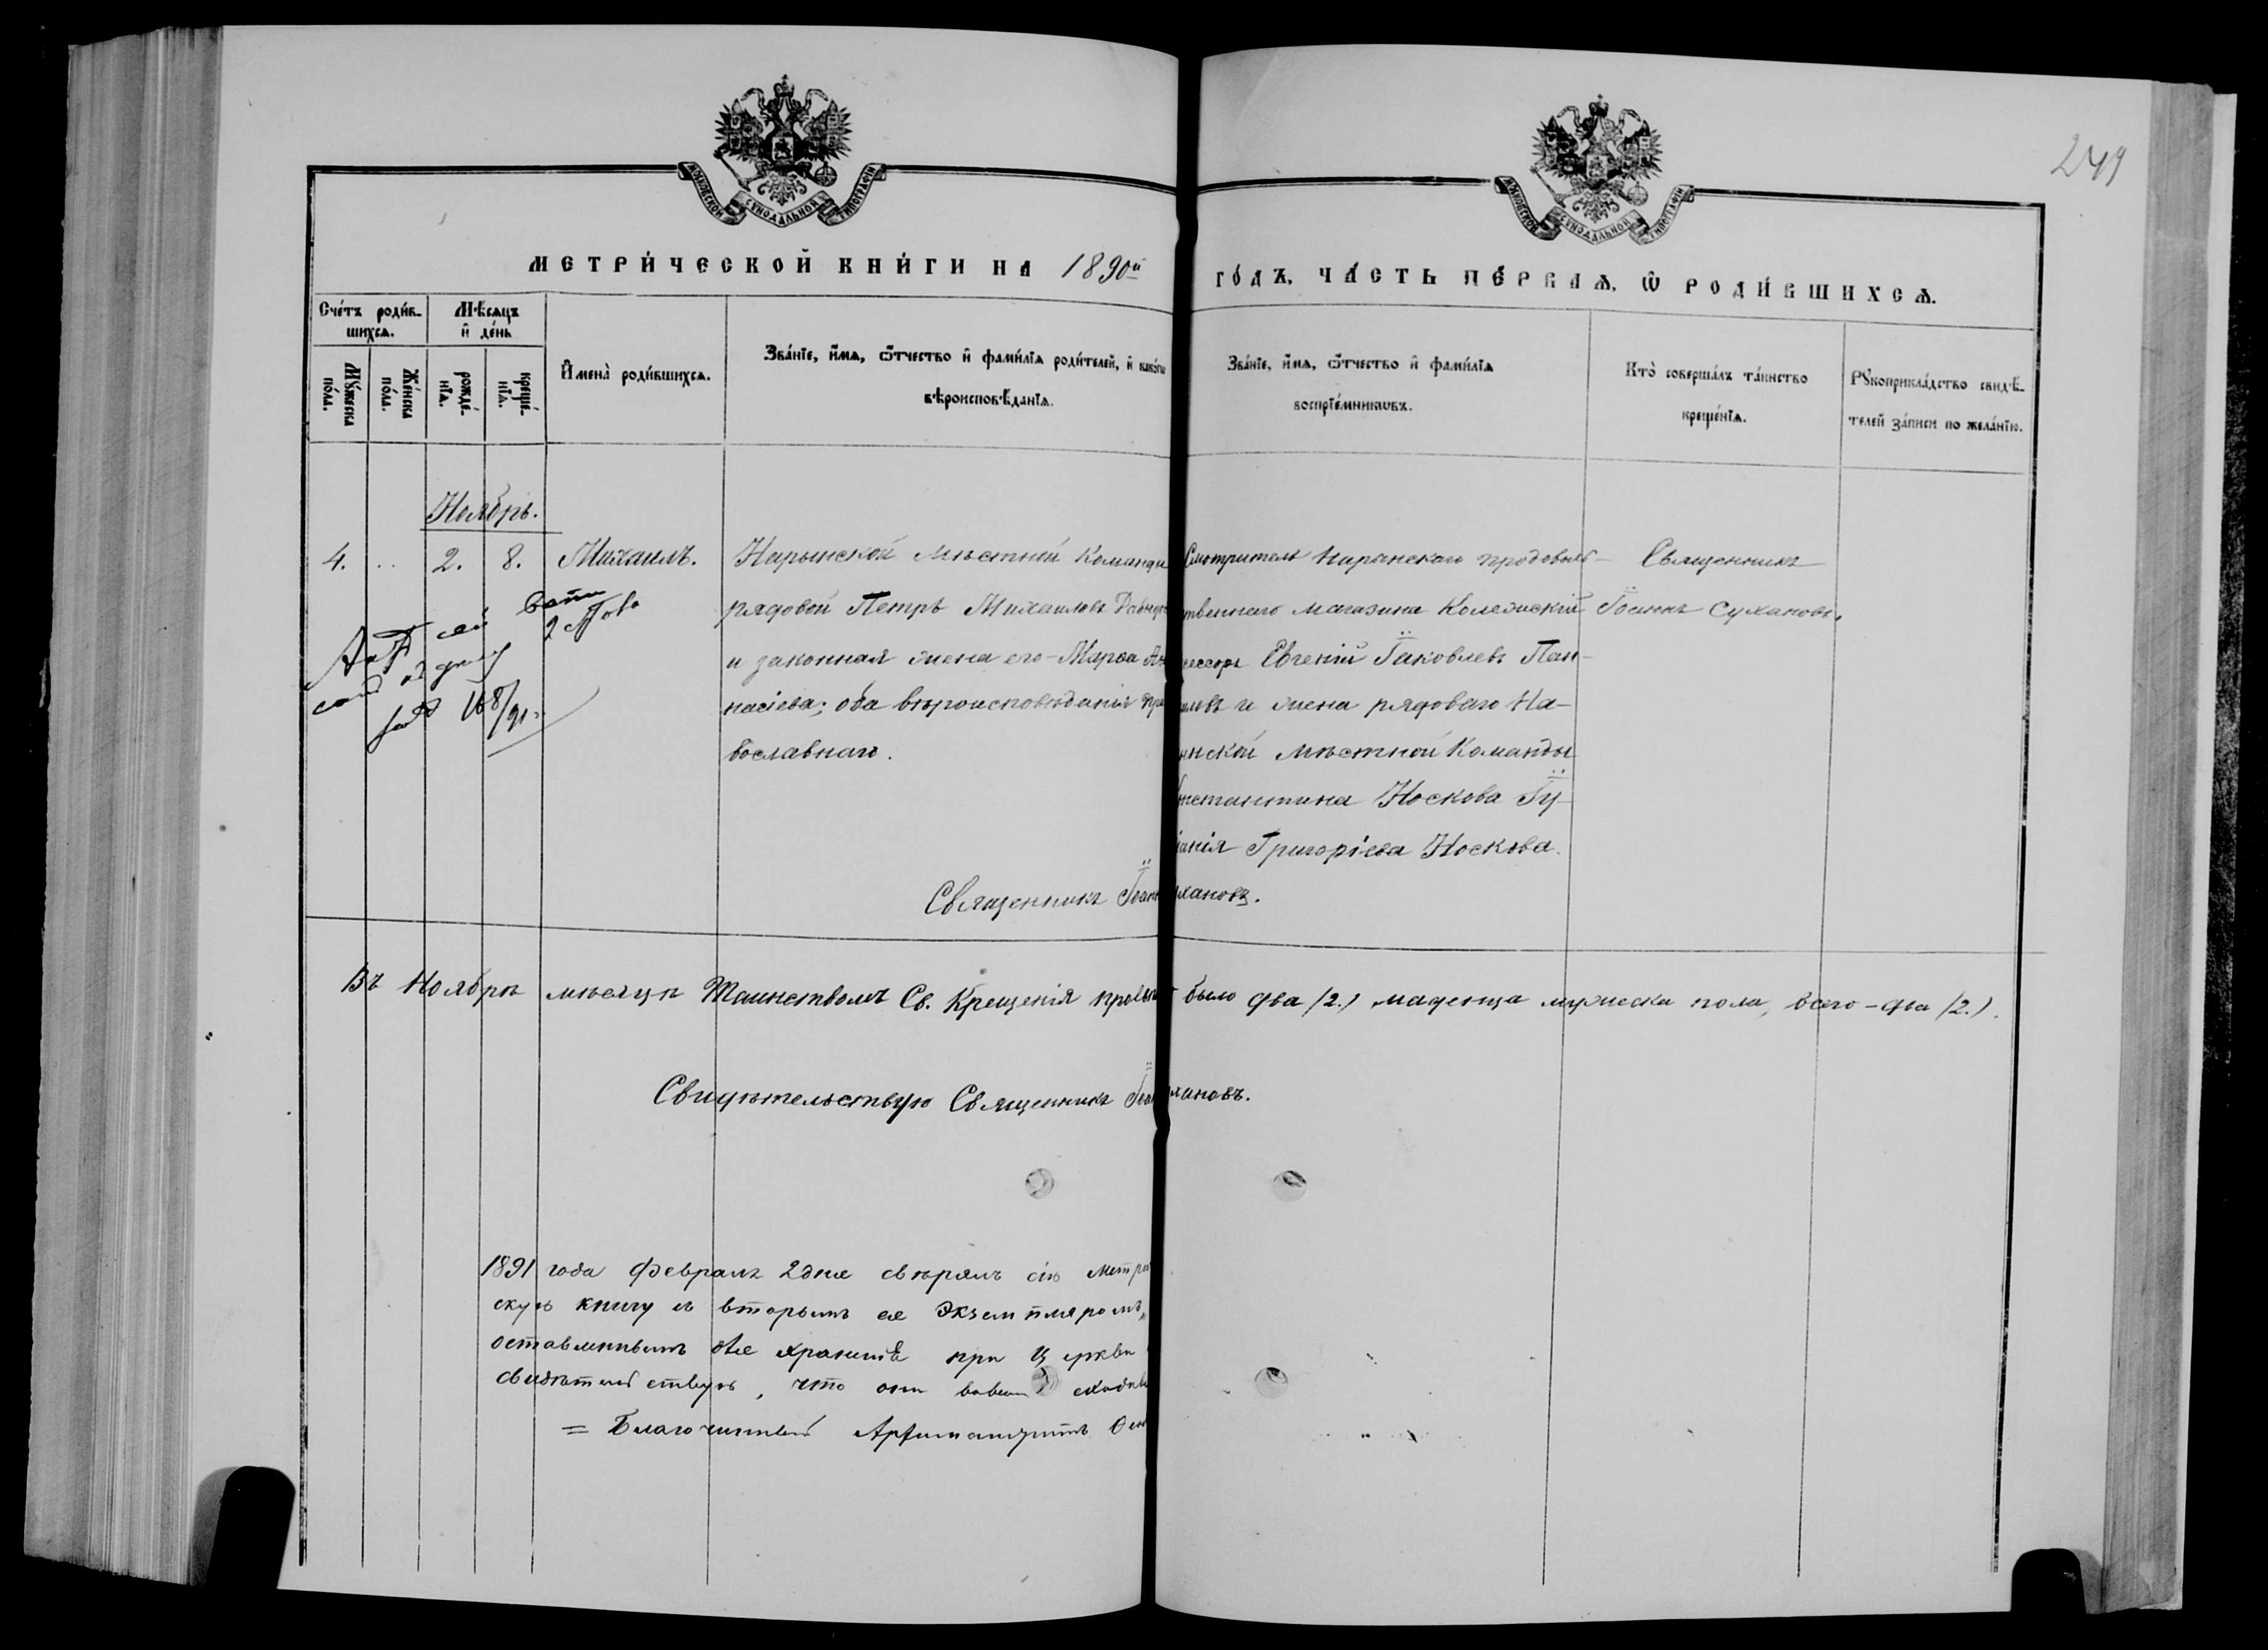 249
МОСКОВСКОЙ СѴНОДАЛЬНОЙ ТИПОГРАФІИ
МОСКОВСКОЙ СѴНОДАЛЬНОЙ ТИПОГРАФІИ
МЕТРИ́ЧЕСКОЙ КНИ́ГИ НА 1890й
ГО́ДЪ, ЧА́СТЬ ПЕ́РВАѦ, Ѡ҆ РОДИ́ВШИХСѦ.
Сче́тъ роди́в-
шихсѧ.
Мѣ́сѧцъ
и҆ де́нь
Мꙋ́жеска
по́ла.
Же́нска
по́ла.
рожде́-
нїѧ.
креще́-
нїѧ.
И҆мена̀ роди́вшихсѧ.
Зва́нїе, и҆́мѧ, ѻ҆́тчество и҆ фами́лїѧ роди́телей, и҆
вѣроисповѣ́данїѧ.
Зва́нїе, и҆́мѧ, ѻ҆́тчество и҆ фами́лїѧ
воспрїе́мникѡвъ.
Кто̀ соверша́лъ та́инство
креще́нїѧ.
Рꙋкоприкла́дство свидѣ́-
телей за́писи по жела́нїю.
Ноябрь.
4. .. 2. 8. Михаилъ.
Нарынской мѣстной Команды
рядовой Петръ Михаиловъ
и законная жена его - Марѳа
насіева; оба вѣроисповѣданія пра
вославнаго.
Смотритель Нарынскаго продоволь-
ственнаго магазина Колежскій
Евгеній Іаковлевъ Пан-
и жена рядоваго На-
нской мѣстной Команды
нстантина Носкова Іу-
Григоріева Носкова.
Священникъ
Іоаннъ Сухановъ.
168/91
Священникъ Іоаннъ хановъ.
Въ Ноябрѣ мѣсяцѣ Таинствомъ Св. Крещенія было два /2./ младенца мужеска пола, всего - два /2./.
Свидѣтельствую Священникъ хановъ.
1891 года Февраля 2 дня свѣрялъ сію метри
скую книгу съ вторымъ ея Экземпляромъ,
оставленнымъ для храненія при Церкви
свидѣтельствую, что они сходны
= Благочинный Архимандритъ